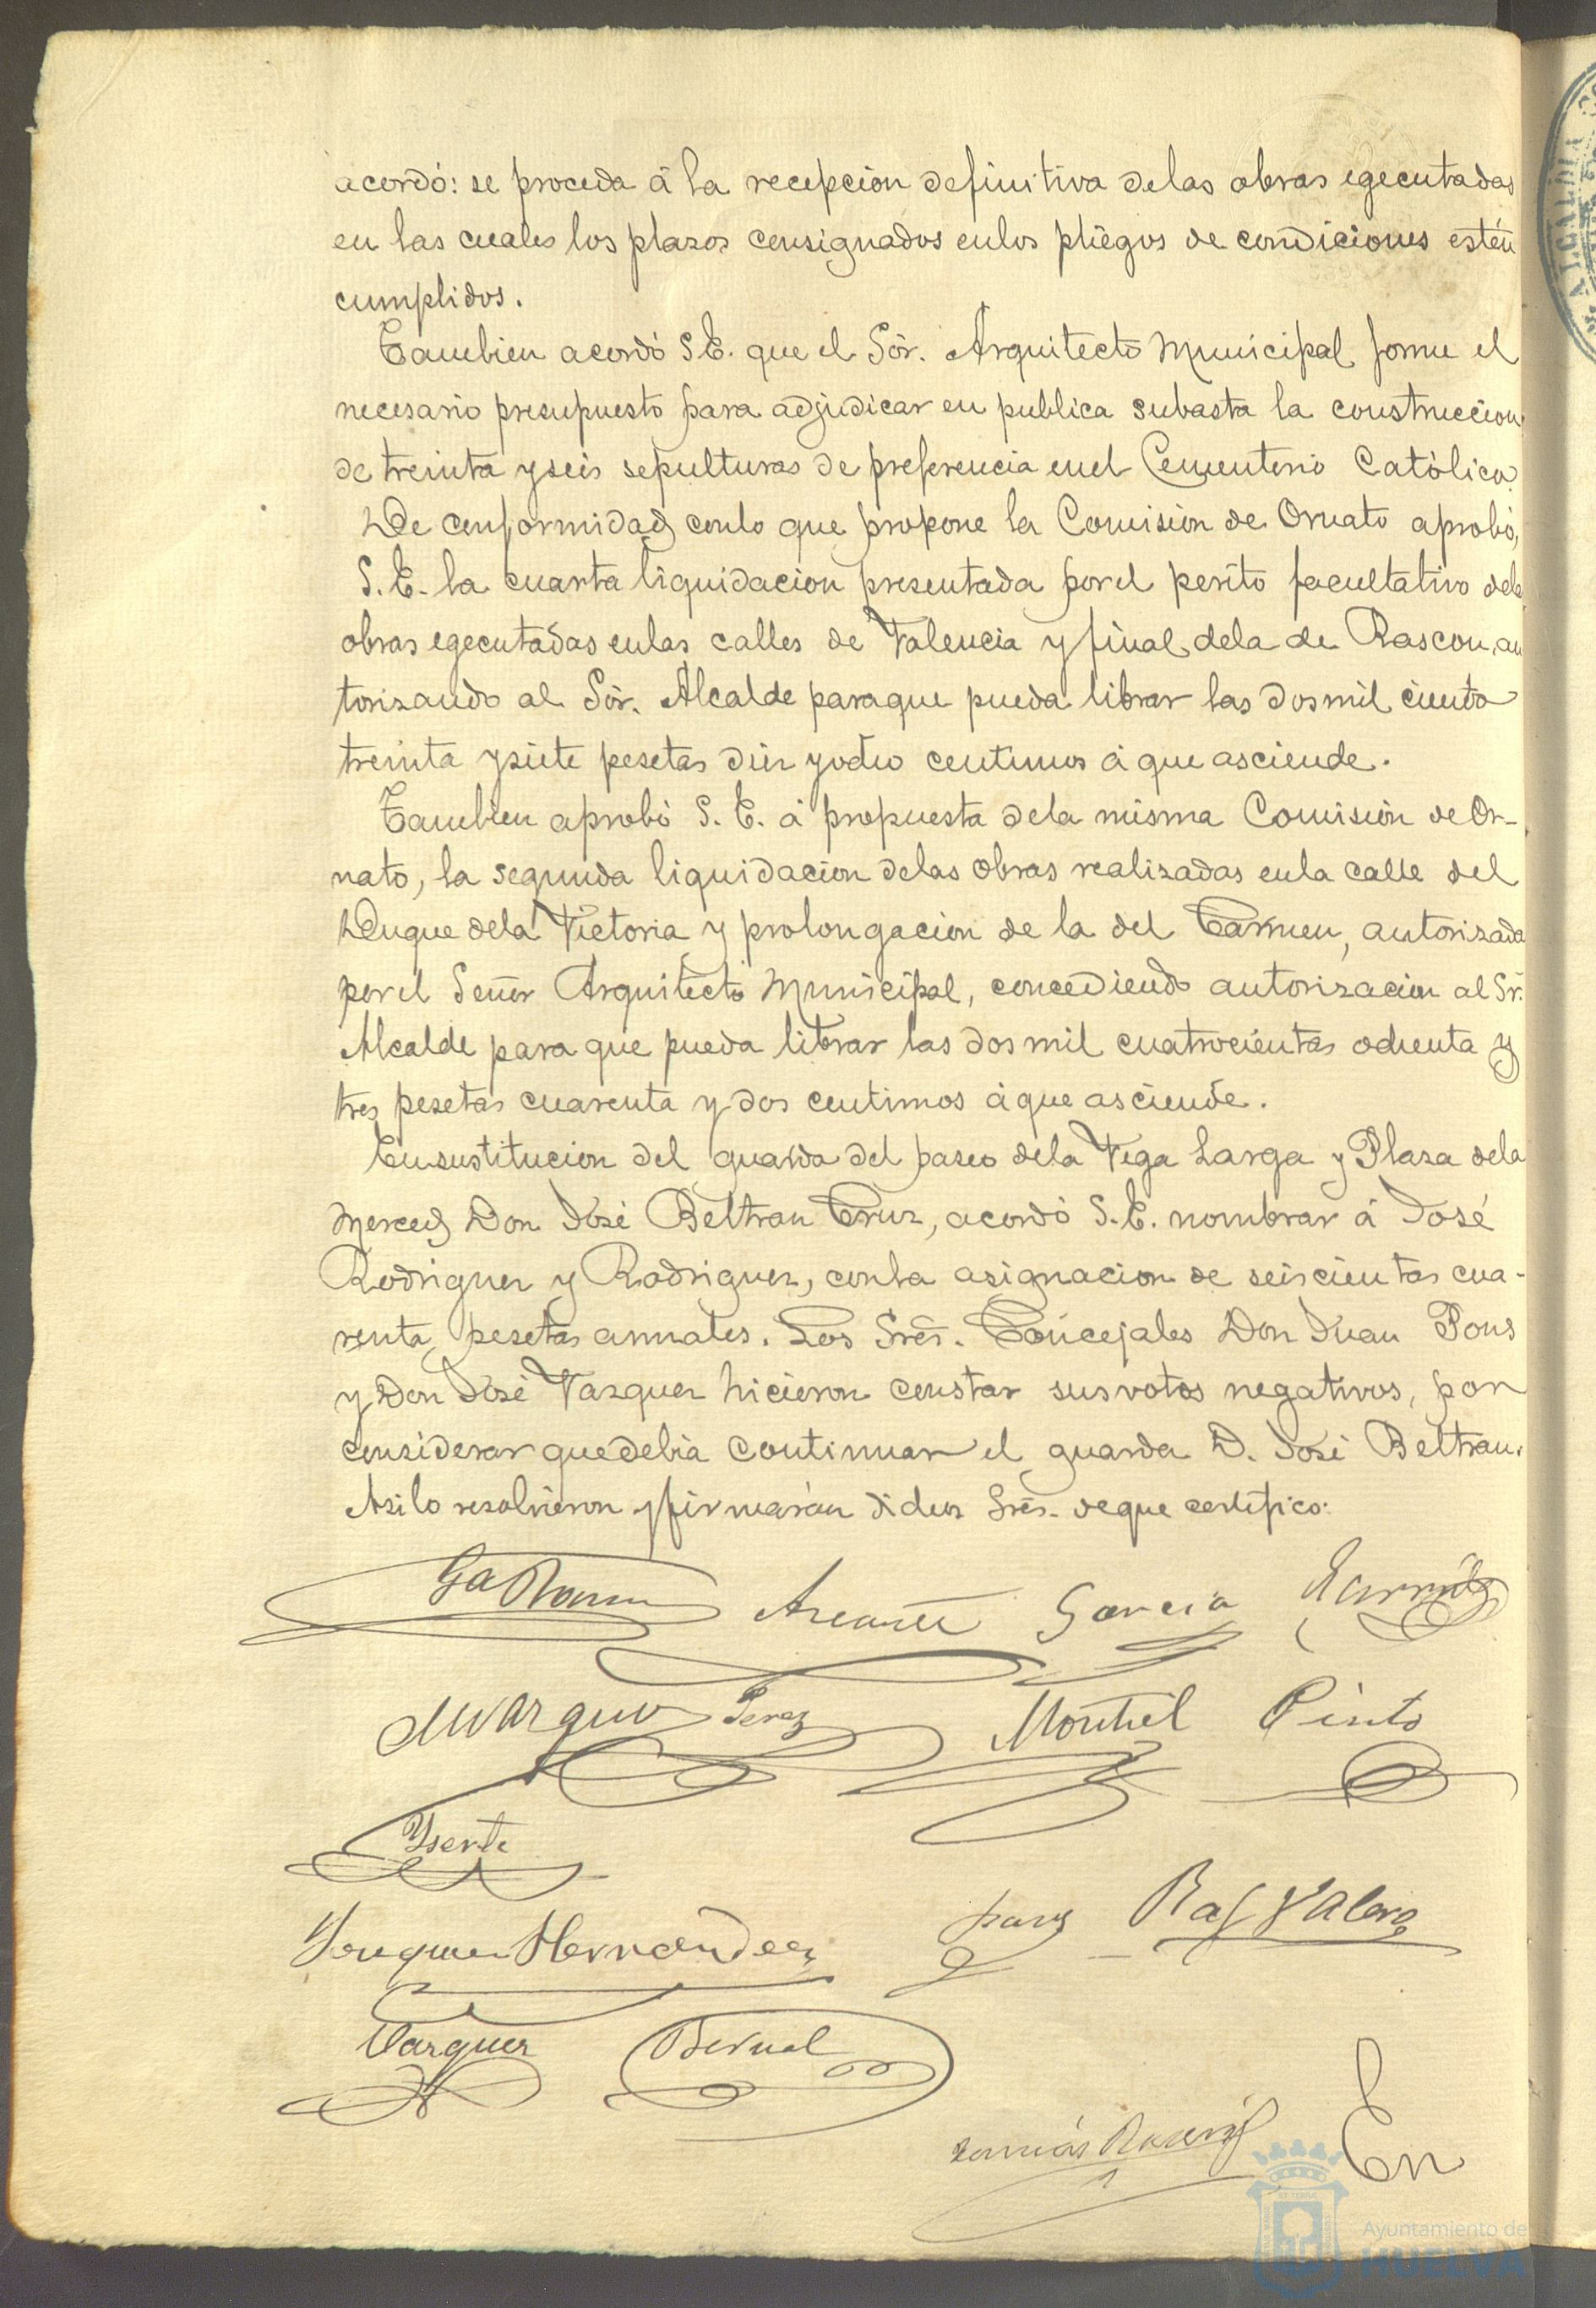 acordó: se proceda á la recepcion definitiva delas obras egecutadas
en las cuales los plazos consignados enlos pliegos de condiciones estén
cumplidos.
Tambien acordó S.E. que el Sór. Arquitecto Municipal forme el
necesario presupuesto para adjudicar en publica subasta la construccion
de treinta y seis sepulturas de preferencia enel Cementerio Católico.
De conformidad conlo que propone la Comisión de Ornato aprobó,
S.E. la cuarta liquidacion presentada porel perito facultativo dela
obras egecutadas enlas calles de Valencia y final dela de Rascon, au
torizando al Sór. Alcalde paraque pueda librar las dosmil ciento
treinta ysiete pesetas diez yocho centimos á que asciende.
Tambien aprobó S.E. á propuesta dela misma Comisión de Or-
nato, la segunda liquidacion delas obras realizadas enla calle del
Duque dela Victoria y prolongacion de la del Carmen, autorizada
porel Señor Arquitecto Municipal, concediendo autorizacion al Sr.
Alcalde para que pueda librar las dos mil cuatrocientas ochenta y
tres pesetas cuarenta y dos centimos áque asciende.
Ensustitucion del guarda del paseo dela Vega Larga y Plaza dela
Merced Don José Beltran Cruz, acordó S.E. nombrar á José
Rodriguez y Rodriguez, conla asignacion de seiscientas cua-
renta pesetas anuales. Los Sres. Concejales Don Juan Pons
y Don José Vazquez hicieron constar susvotos negativos, por
considerar quedebia continuar el guarda D. José Beltran.
Asi lo resolvieron yfirmarán dichos Sres. deque certifico:
García
Marquez Perez Montiel Pinto
Yserte
Hernandez Pons Raf Valero
Vazquez Bernal
Tomás
En
Ayuntamiento de
HUELVA
ALCALDIA